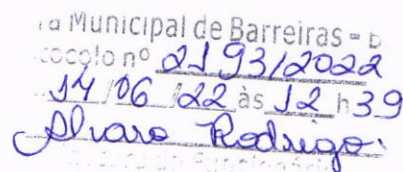 a Municipal de Barreiras - B
ocolo nº 2193/2022
14/06/22 às 12 h 39
Alvaro Rodrigo